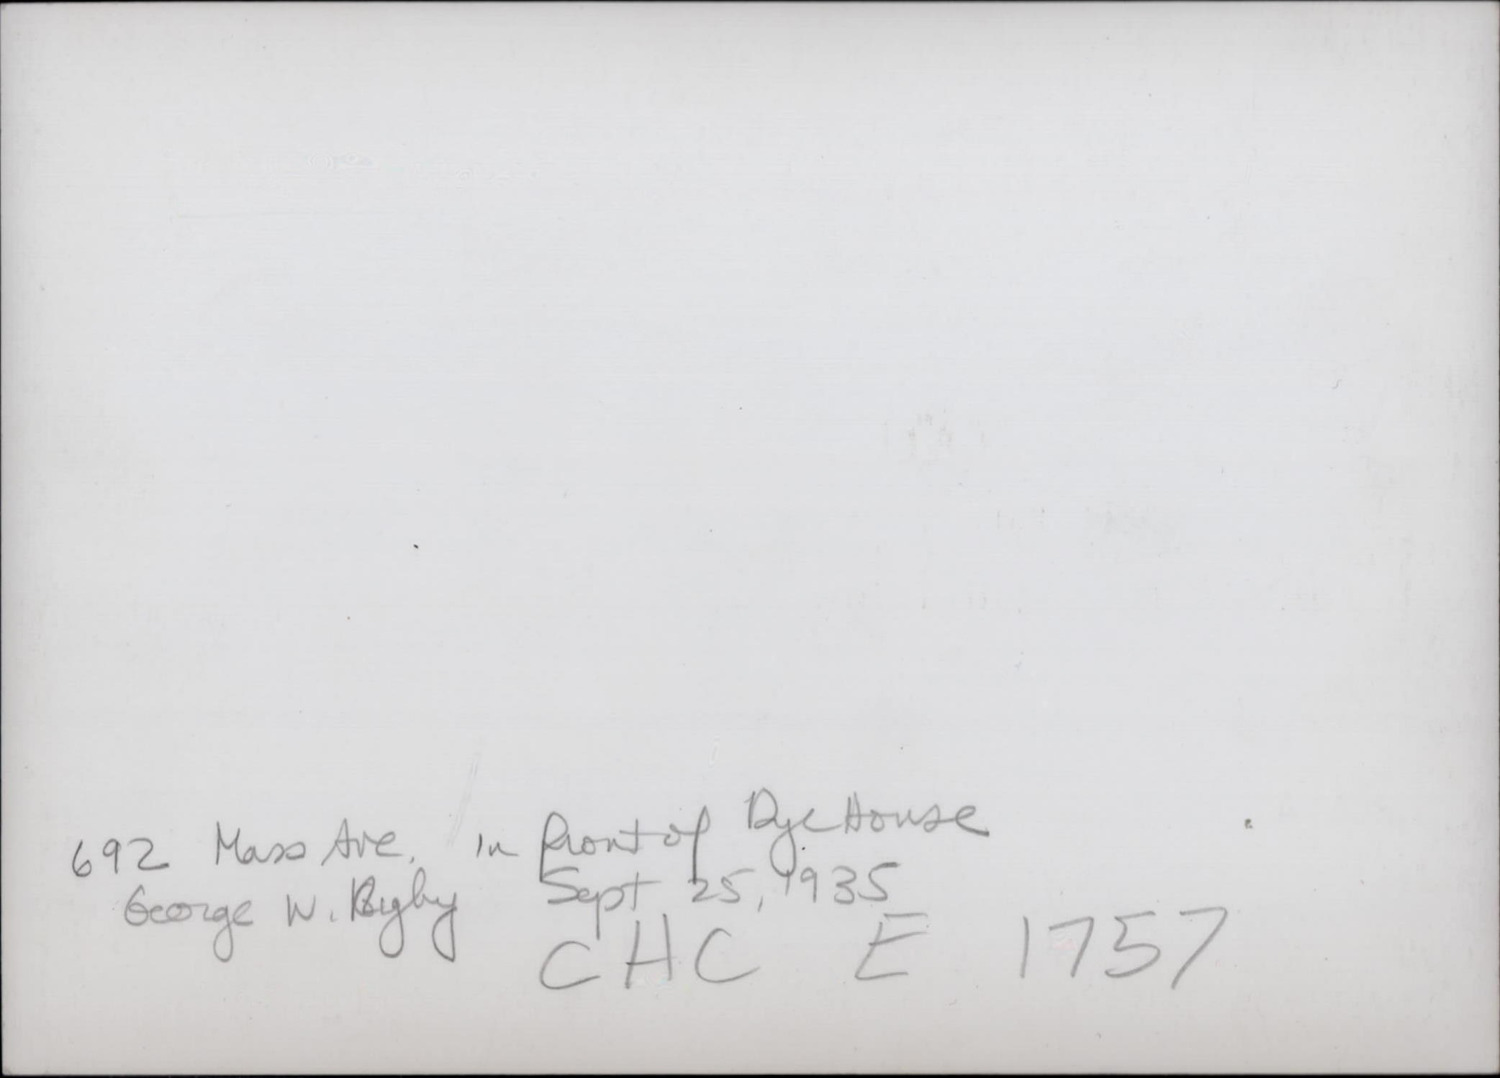 692 Mass Ave. in front of Dye House
George W. Rigby Sept 25, 1935
CHC E 1757